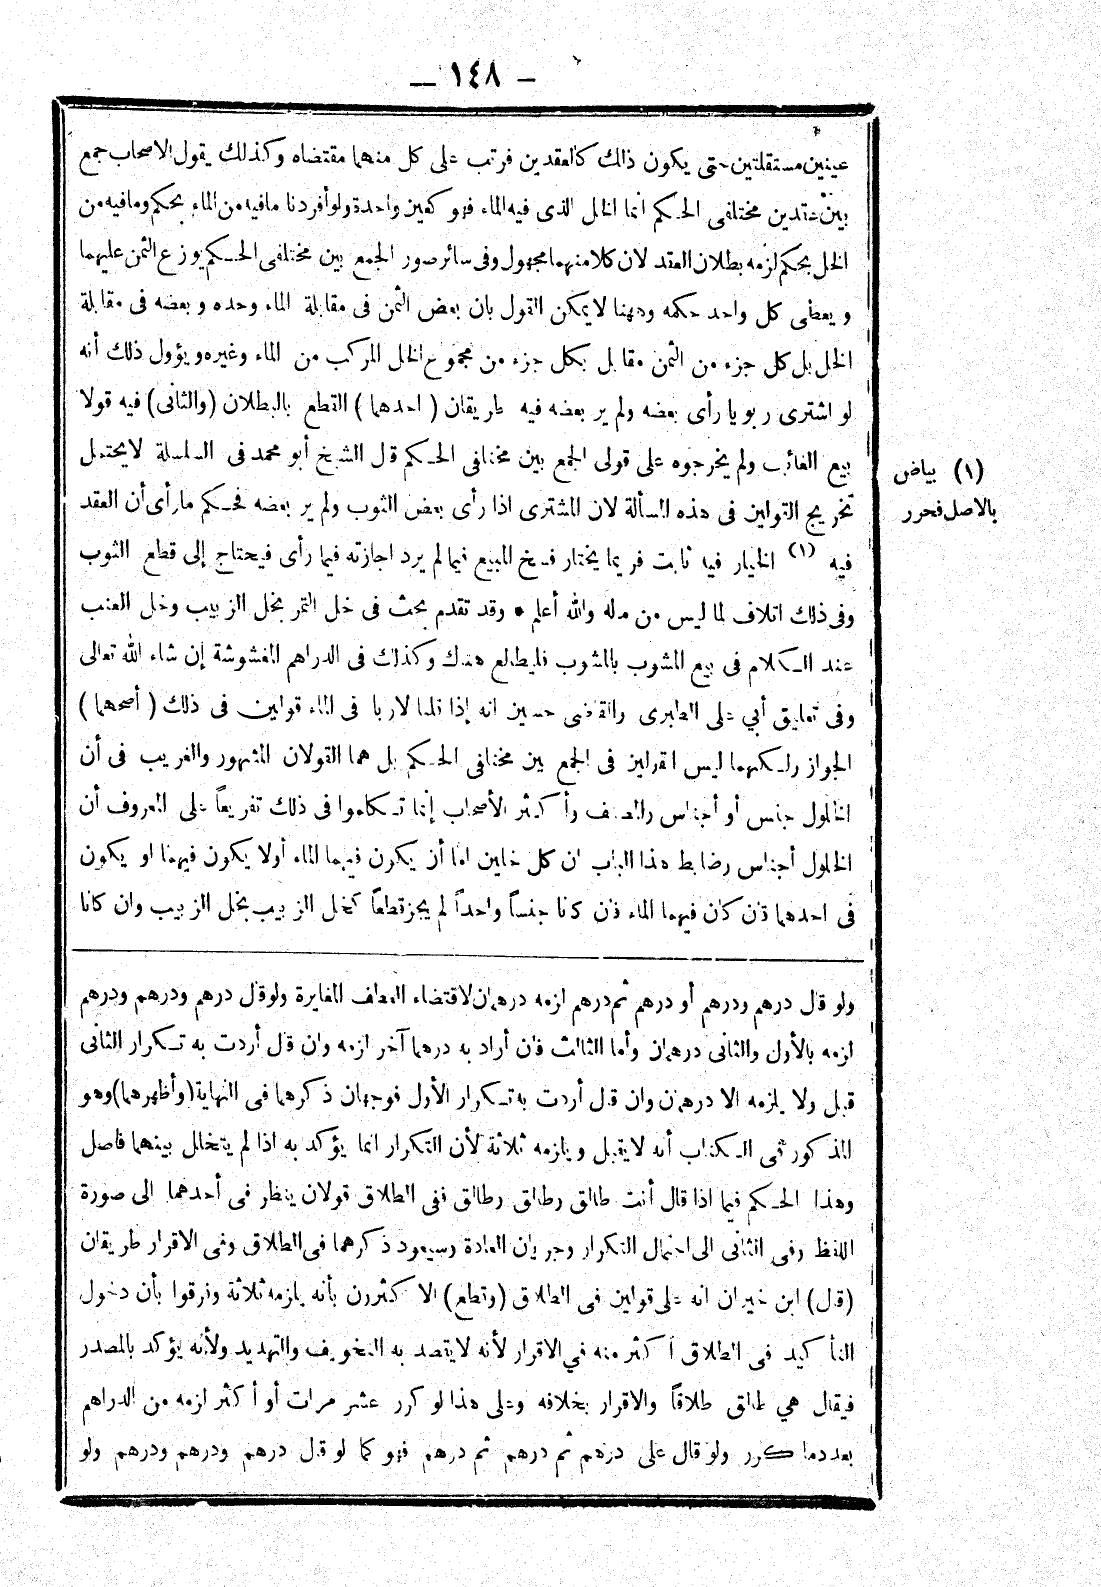 — ١٤٨ —
عينين مستقلتين حتى يكون ذلك كالعقدين فرتب على كل منهما مقتضاه وكذلك يقول الاصحاب جمع
بين عقدين مختلفى الحكم انما الخل الذى فيه الماء فهو كعين واحدة ولو أفردنا مافيه من الماء بحكم ومافيه من
الخل بحكم لزمه بطلان العقد لان كلا منهما مجهول وفى سائر صور الجمع بين مختلفى الحكم يوزع الثمن عليهما
ويعطى كل واحد حكمه وههنا لا يمكن القول بان بعض الثمن فى مقابلة الماء وحده وبعضه فى مقابلة
الخل بل كل جزء من الثمن مقابل بكل جزء من مجموع الخل المركب من الماء وغيره ويؤول ذلك أنه
لو اشترى ربويا رأى بعضه ولم ير بعضه فيه طريقان (احدهما) القطع بالبطلان (والثانى) فيه قولا
بيع الغائب ولم يخرجوه على قولى الجمع بين مختلفى الحكم قال الشيخ أبو محمد فى السلسلة لا يحتمل
تخريج القولين فى هذه المسألة لان المشترى اذا رأى بعض الثوب ولم ير بعضه فحكم ما رأى أن العقد
فيه (١) الخيار فيه ثابت فربما يختار فسخ المبيع فيما لم يرد اجازته فيما رأى فيحتاج إلى قطع الثوب
وفى ذلك اتلاف لما ليس من ماله والله أعلم * وقد تقدم بحث فى خل التمر بخل الزبيب وخل العنب
عند الكلام فى بيع المشوب بالمشوب فليطالع هناك وكذلك فى الدراهم المغشوشة إن شاء الله تعالى
وفى تعليق أبي على الطبرى والقاضى حسين انه إذا قلنا لا ربا فى الماء قولين فى ذلك (أصحهما)
الجواز ولكنهما ليس القولين فى الجمع بين مختلفى الحكم بل هما القولان المشهور والغريب فى أن
الخلول جنس أو أجناس والمصنف وأكثر الأصحاب إنما تكلموا فى ذلك تفريعاً على المعروف أن
الخلول أجناس وضابط هذا الباب ان كل خلين اما أن يكون فيهما الماء أولا يكون فيهما او يكون
فى احدهما فان كان فيهما الماء فان كانا جنساً واحداً لم يجز قطعاً كخل الزبيب بخل الزبيب وان كانا
(١) بياض
بالاصل فحرر
ولو قال درهم ودرهم أو درهم ثم درهم لزمه درهمان لاقتضاء العطف المغايرة ولو قال درهم ودرهم ودرهم
لزمه بالأول والثانى درهمان وأما الثالث فان أراد به درهما آخر لزمه وان قال أردت به تكرار الثانى
قبل ولا يلزمه الا درهمان وان قال أردت به تكرار الأول فوجهان ذكرهما فى النهاية (وأظهرهما) وهو
المذكور فى الكتاب أنه لا يقبل ويلزمه ثلاثة لأن التكرار انما يؤكد به اذا لم يتخلل بينهما فاصل
وهذا الحكم فيما اذا قال أنت طالق وطالق وطالق ففى الطلاق قولان ينظر فى أحدهما الى صورة
اللفظ وفى الثانى الى احتمال التكرار وجريان العادة وسيعود ذكرهما فى الطلاق وفى الاقرار طريقان
(قال) ابن خيران انه على قولين فى الطلاق (وقطع) الاكثرون بأنه يلزمه ثلاثة وفرقوا بأن دخول
التأكيد فى الطلاق أكثر منه في الاقرار لأنه لا يقصد به التخويف والتهديد ولأنه يؤكد بالمصدر
فيقال هي طالق طلاقاً والاقرار بخلافه وعلى هذا لو كرر عشر مرات أو أكثر لزمه من الدراهم
بعدد ما كرر ولو قال على درهم ثم درهم ثم درهم فهو كما لو قال درهم ودرهم ودرهم ولو